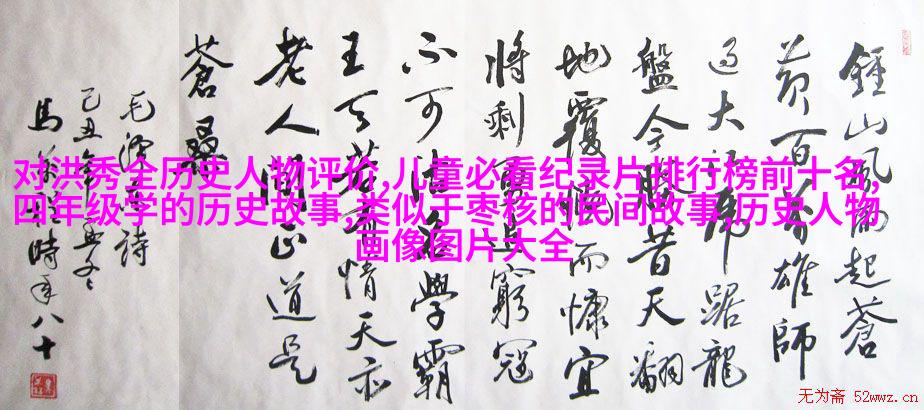 对洪秀全历史人物评价,儿童必看纪录片排行榜前十名,
四年级学的历史故事,类似于枣核的民间故事,历史人物
画像图片大全
鍾山風雨起蒼
黃百萬雄師
過大江虎踞龍
盤今勝昔天翻
地覆慨而慷宜
將剩勇追窮冦
不可沽名學霸
王天若有情天亦
老人間正道是
蒼桑
毛澤東詩
己丑年
馬 時年八十
无为斋 52wwz.cn